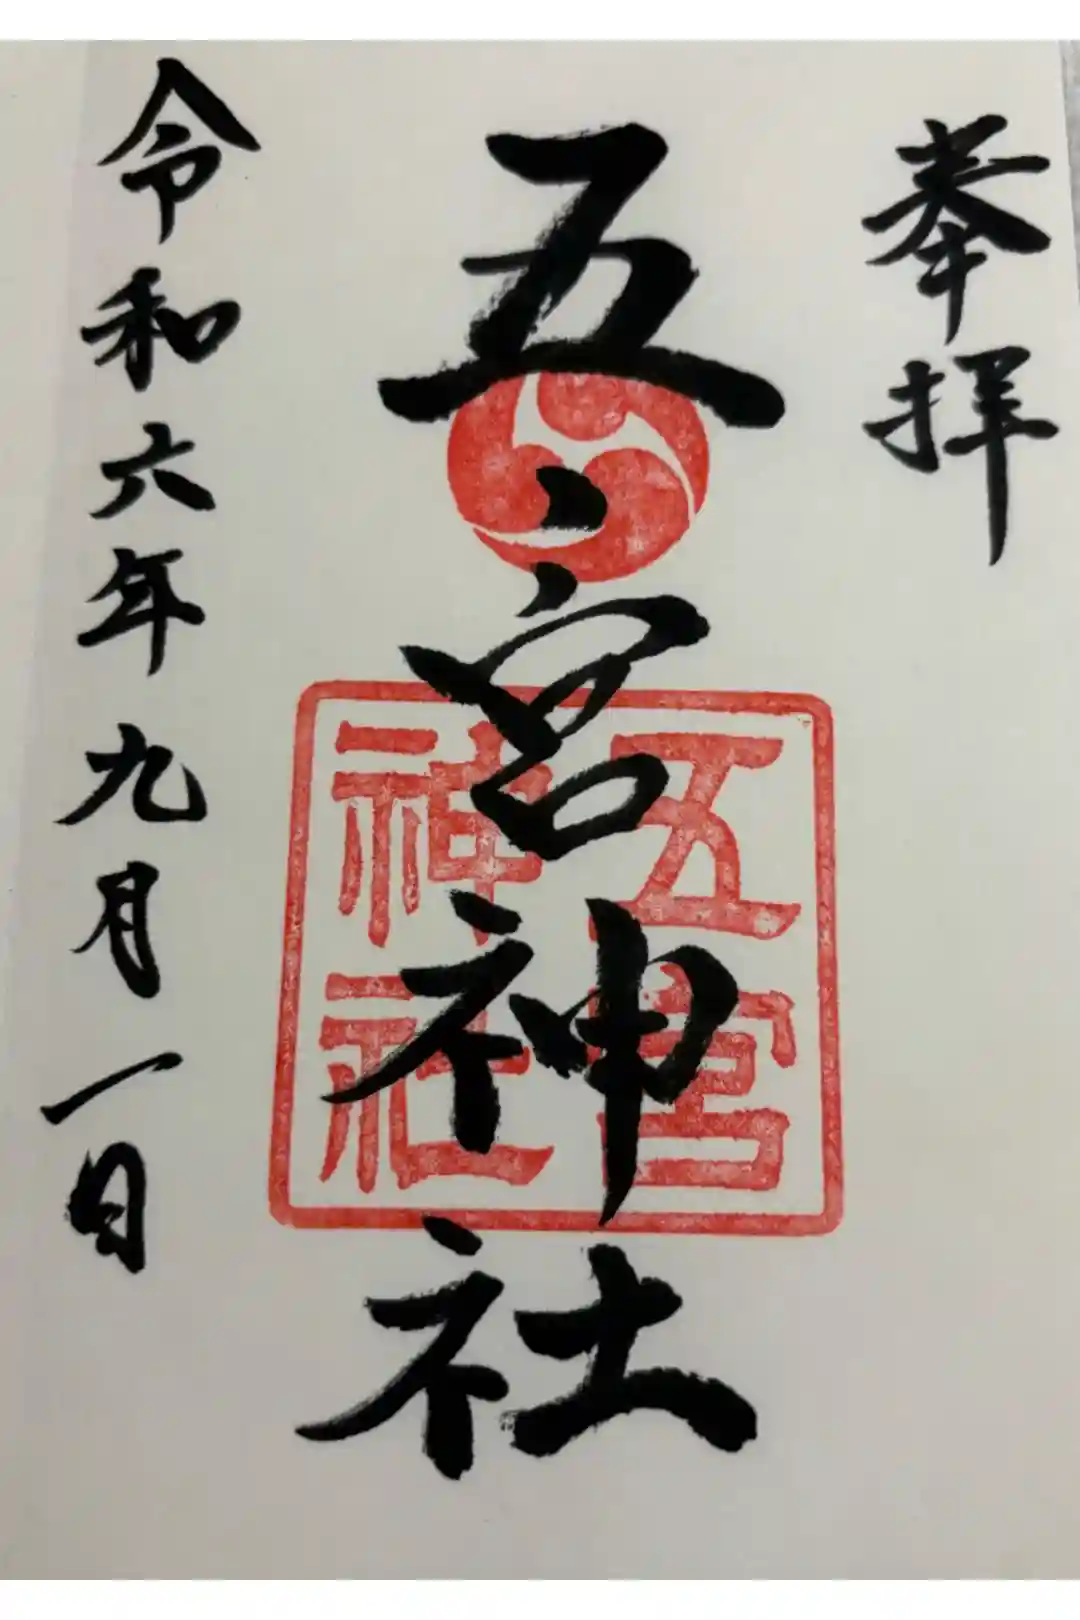 奉拝
五
宮
神
社
五宮
神社
令和六年九月一日